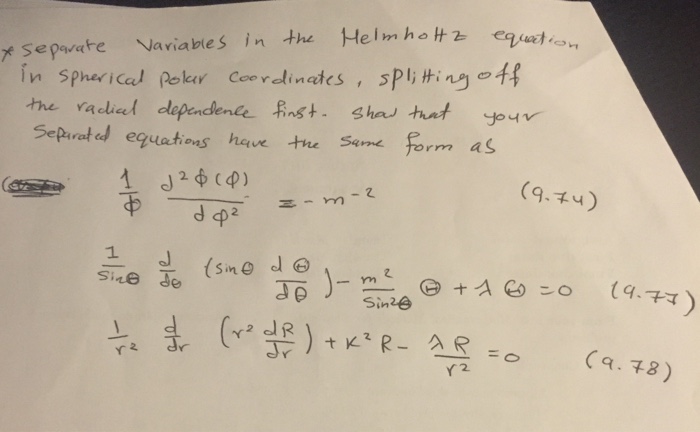 * Separate Variables in the Helmholtz equation
in spherical polar coordinates, splitting off
the radial dependence first. Show that your
Separated equations have the same form as
1/Φ d²Φ(φ)/dφ² = -m-2 (9.74)
1/sinθ d/dθ (sinθ dΘ/dθ) - m²/sin²θ Θ + λΘ = 0 (9.77)
1/r² d/dr (r² dR/dr) + K²R - λR/r² = 0 (9.78)